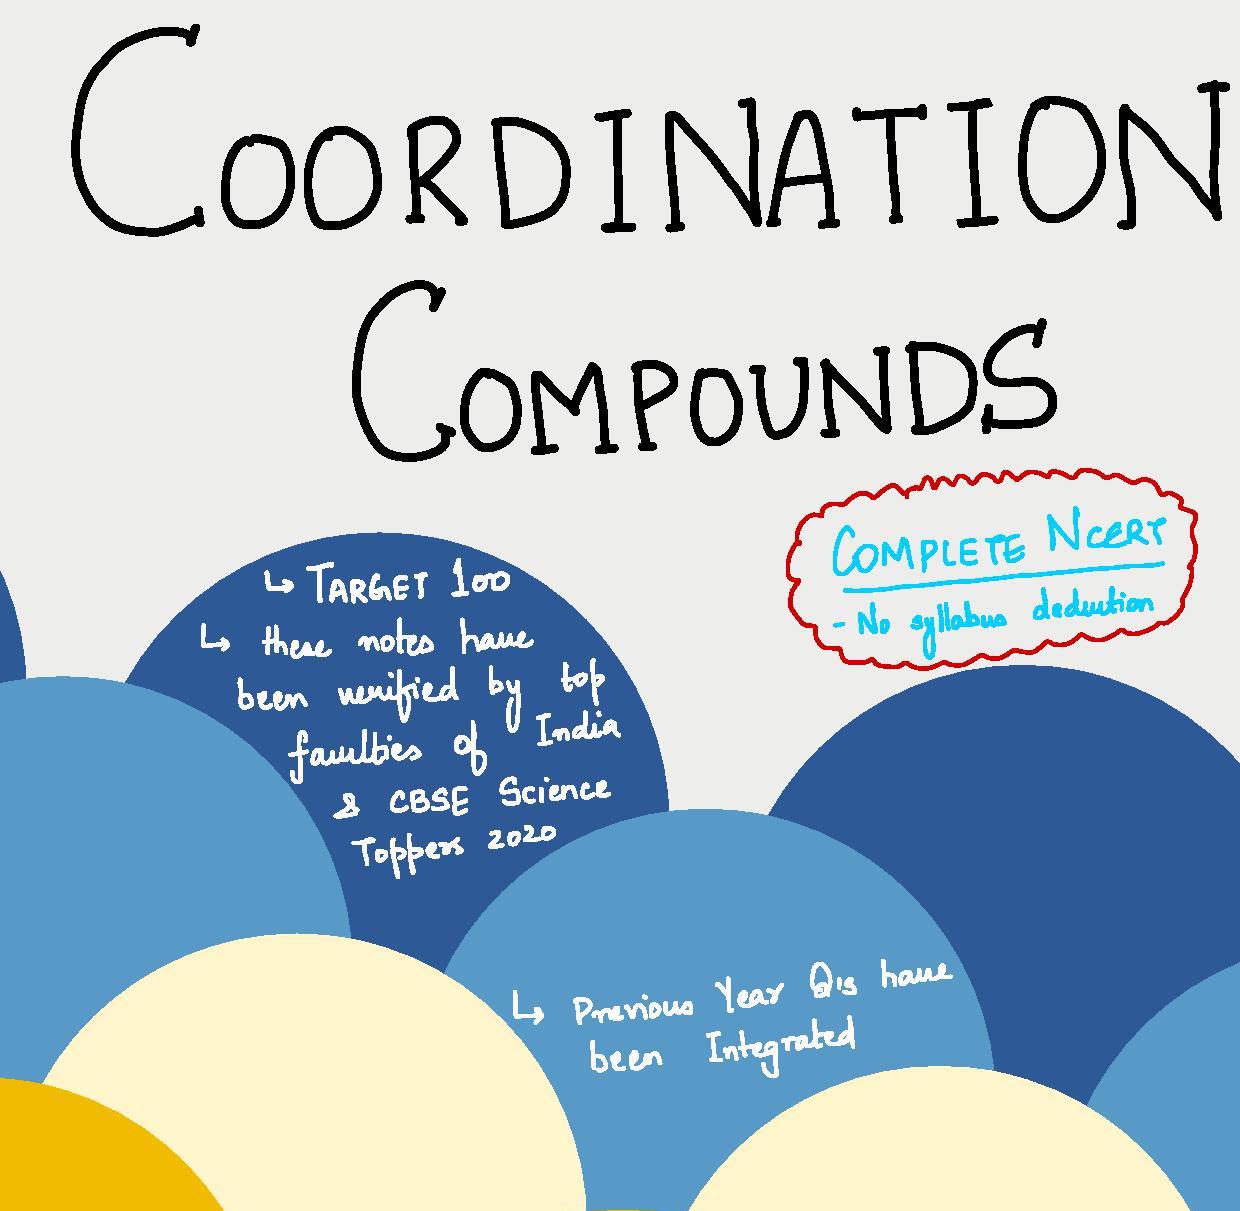 COORDINATION
COMPOUNDS
COMPLETE NCERT
- No syllabus deduction
↳ TARGET 100
↳ these notes have
been verified by top
faculties of India
& CBSE Science
Toppers 2020
↳ Previous Year Q's have
been Integrated